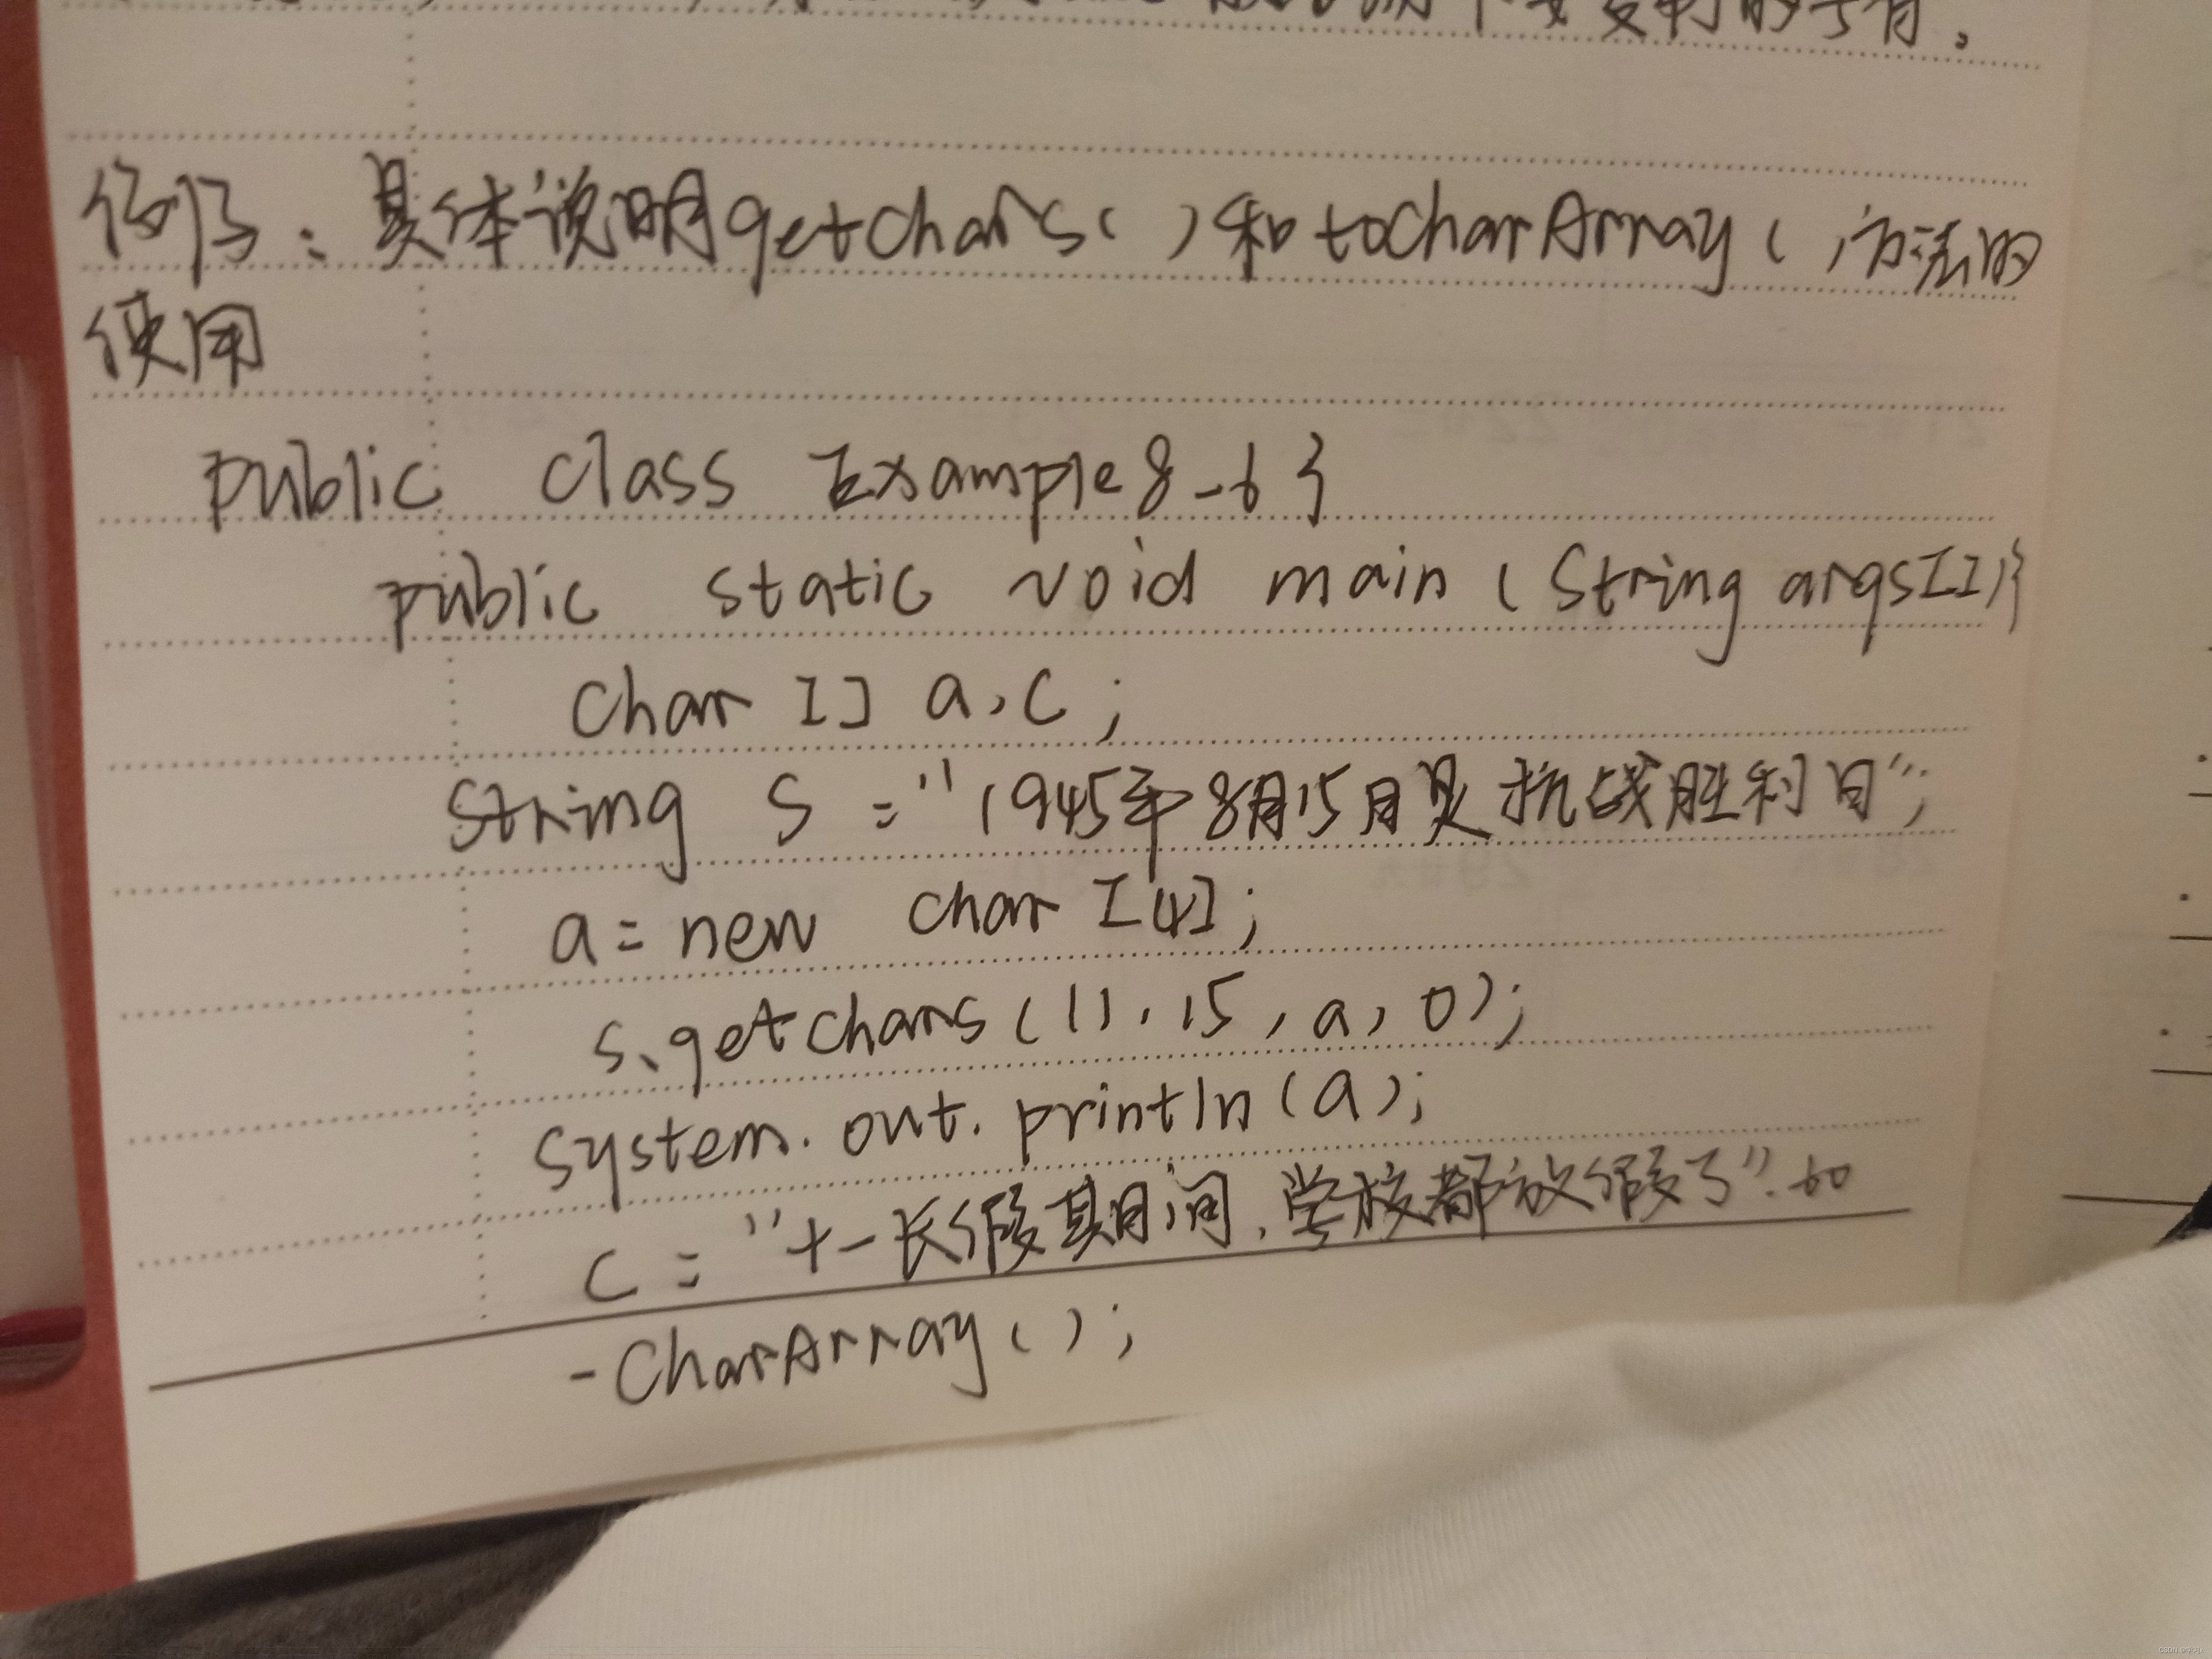 要复制的字符。
例子：具体说明getchars( )和toCharArray( )方法的
使用
public class Example8_6 {
public static void main (String args[]){
char [] a,c;
string s = "1945年8月15日是抗战胜利日";
a = new char [4];
s.getchars(11,15,a,0);
system.out.println(a);
c = "十一长假期间,学校都放假了".to
-CharArray();